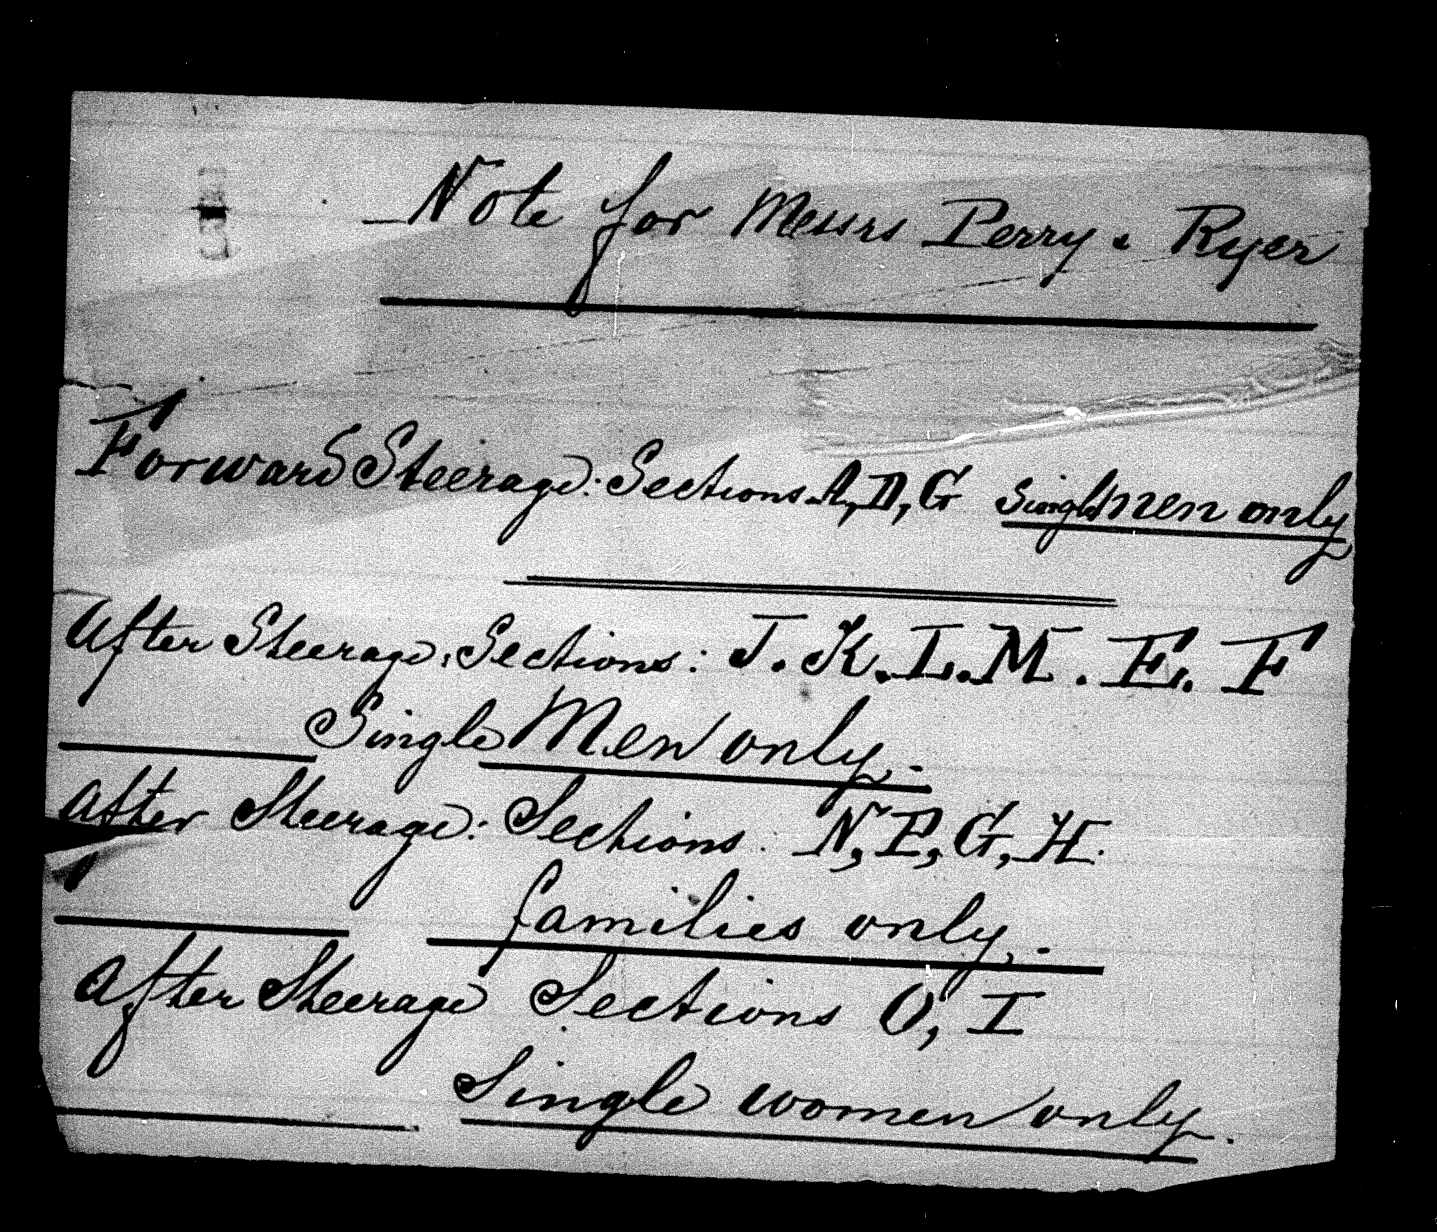 Note for Messrs Perry & Ryer
Forward Steerage: Sections A, D, G Single men only
After Steerage, Sections: J. K. L. M. E. F
Single Men only.
After Steerage: Sections: N, P, G, H.
families only.
After Steerage Sections O, I
Single women only.